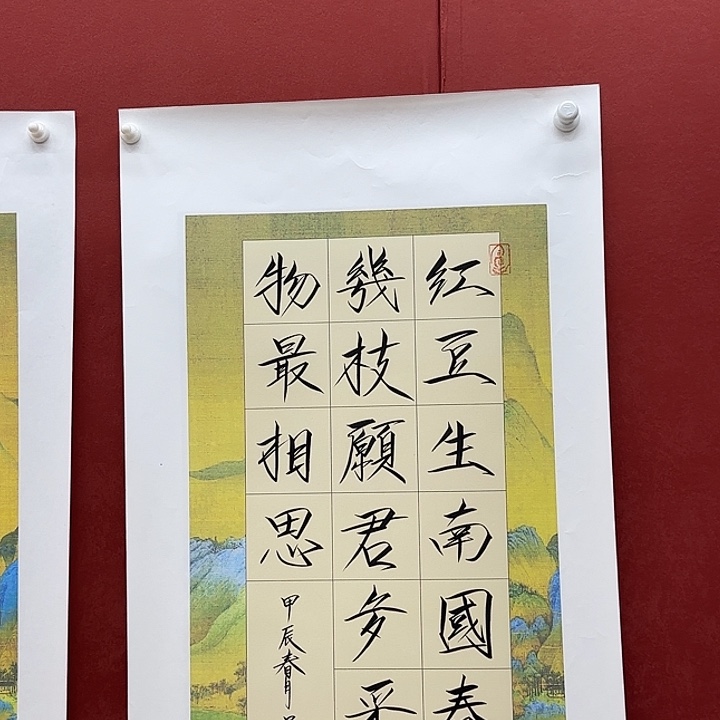 红豆生南國春
幾枝願君多采
物最相思
甲辰春月